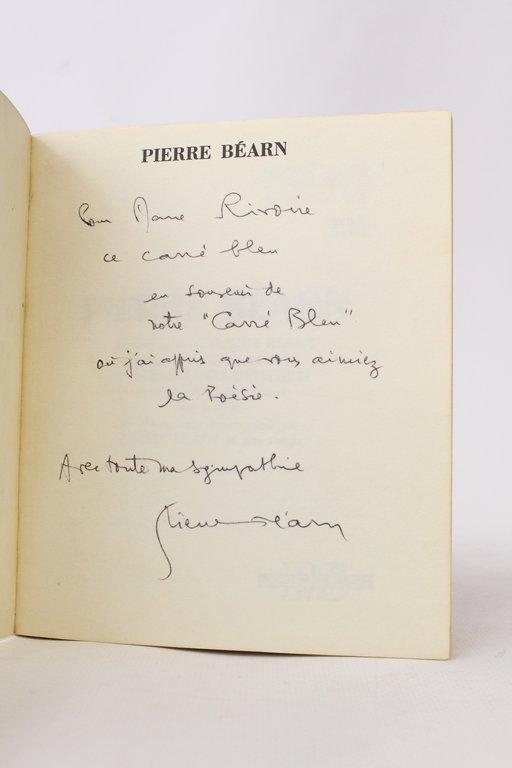 PIERRE BÉARN
Pour Rivoire
ce carré bleu
en souvenir de
notre "Carré Bleu"
où j'ai appris que vous aimiez
la Poésie.
Avec toute ma sympathie
Pierre Béarn